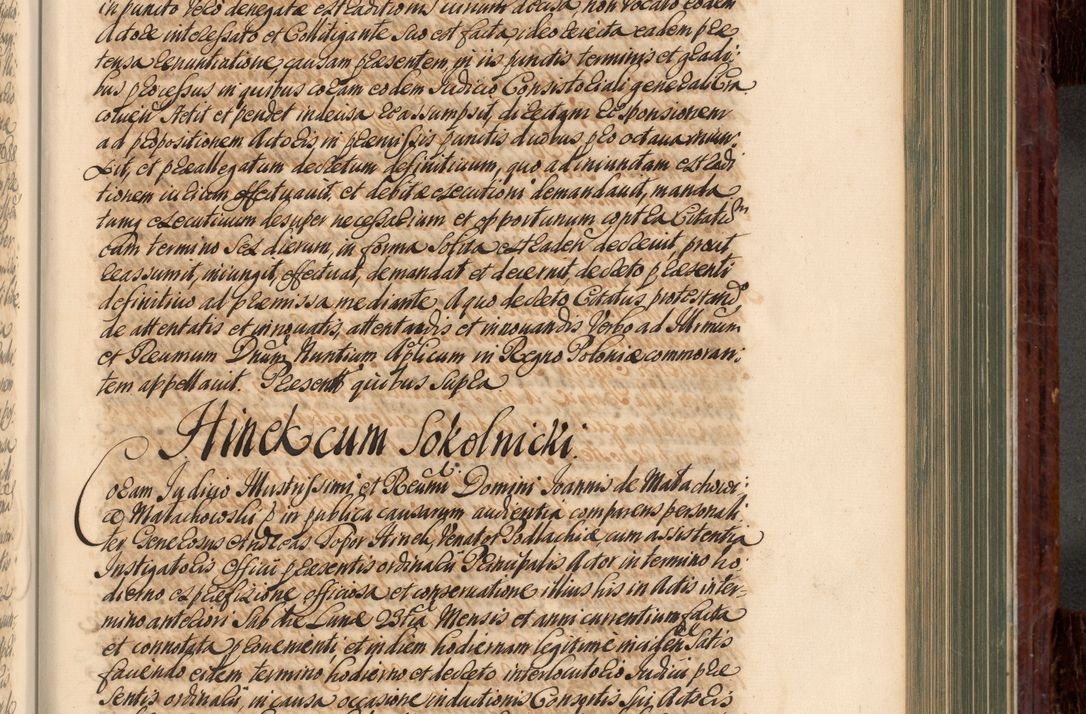 in puncto velo denegatæ extraditionis citrium accusa non vocato eodem
Actore interessato et Collitigante suo est facta, ideo rejecta eadem præ
tensa renuntiatione, causam præsentem, in iis punctis terminis et gradi
bus processus in quibus coram eodem Judicio Consistoriali generali Cra
coviensi stetit et pendet indecisa reassumpsit, directam responsionem
ad propositionem Actoris in præmissis punctis duobus pro octava
xit, et præallegatum decretum definitivum, quo ad iniunctam extradi
tionem effectuavit, et debitæ executioni demandavit, manda
tumq executivum desuper necessarium et opportunum contra Citatum
eam termino sex dierum, in forma solita extradendum decrevit, prout
reassumit, iniungit, effectuat, demandat et decernit decreto præsenti
definitivo ad præmissa mediante. A quo decreto Citatus, protestando
de attentatis et innovatis, attentandis et innovandis Verbo ad Illmum
et Reumum Dnum Nuntium Aplicum in Regno Poloniæ commoran:
tem appellavit. Præsentibus quibus supra
Hinek cum Sokolnicki.
Coram Judicio Illustrissimi et Reumi Domini Joannis de Małachowi:
ce Małachowski p in publica causarum audientia comparens personali
ter, Generosus Andreas Topor Hinek, Venator Podlachiæ cum assistentia
Instigatoris Officii præsentis ordinarii Principalis Actor in termino ho
dierno ex præfixione officiosa et conservatione illius his in Actis inter-
mino anteriori Sub die Lunæ 23tia Mensis et anni currentium facta
et connotata provenienti, et in diem hodiernam legitime incidenti Satis
faciendo eidem termino hodierno et decreto interlocutorio Judicii præ
sentis ordinarii, in causa occasione inductionis Consortis Sui Actoris